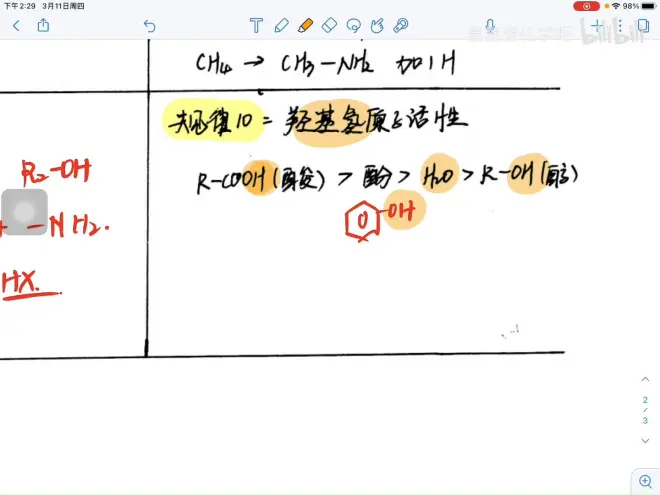 下午2:29 3月11日周四
98%
bilibili
CH4 → CH3-NH2 加1H
规律10=羟基氢原子活性
R2-OH
R-COOH(羧酸) > 酚 > H2O > R-OH(醇)
-OH
-NH2.
HX.
2
/
3